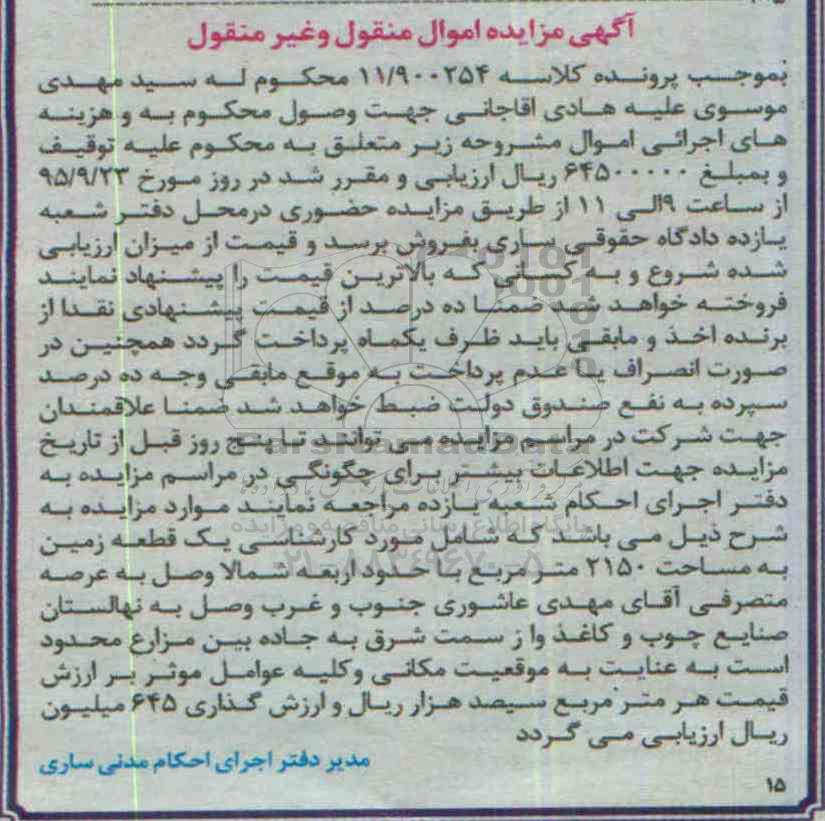 آگهی مزایده اموال منقول وغیر منقول
بموجب پرونده کلاسه ۱۱/۹۰۰۲۵۴ محکوم له سید مهدی
موسوی علیه هادی اقاجانی جهت وصول محکوم به و هزینه
های اجرائی اموال مشروحه زیر متعلق به محکوم علیه توقیف
و بمبلغ ۶۴۵۰۰۰۰۰۰ ریال ارزیابی و مقرر شد در روز مورخ ۹۵/۹/۲۳
از ساعت ۹الی ۱۱ از طریق مزایده حضوری درمحل دفتر شعبه
یازده دادگاه حقوقی ساری بفروش برسد و قیمت از میزان ارزیابی
شده شروع و به کسانی که بالاترین قیمت را پیشنهاد نمایند
فروخته خواهد شد ضمنا ده درصد از قیمت پیشنهادی نقدا از
برنده اخذ و مابقی باید ظرف یکماه پرداخت گردد همچنین در
صورت انصراف یا عدم پرداخت به موقع مابقی وجه ده درصد
سپرده به نفع صندوق دولت ضبط خواهد شد ضمنا علاقمندان
جهت شرکت در مراسم مزایده می توانند تا پنج روز قبل از تاریخ
مزایده جهت اطلاعات بیشتر برای چگونگی در مراسم مزایده به
دفتر اجرای احکام شعبه یازده مراجعه نمایند موارد مزایده به
شرح ذیل می باشد که شامل مورد کارشناسی یک قطعه زمین
به مساحت ۲۱۵۰ متر مربع با حدود اربعه شمالا وصل به عرصه
متصرفی آقای مهدی عاشوری جنوب و غرب وصل به نهالستان
صنایع چوب و کاغذ وا ز سمت شرق به جاده بین مزارع محدود
است به عنایت به موقعیت مکانی وکلیه عوامل موثر بر ارزش
قیمت هر متر مربع سیصد هزار ریال و ارزش گذاری ۶۴۵ میلیون
ریال ارزیابی می گردد
مدیر دفتر اجرای احکام مدنی ساری
۱۵
ParsNamadData
پایگاه اطلاع رسانی مناقصه و مزایده
۰۲۱-۸۸۳۴۹۶۷۰-۵